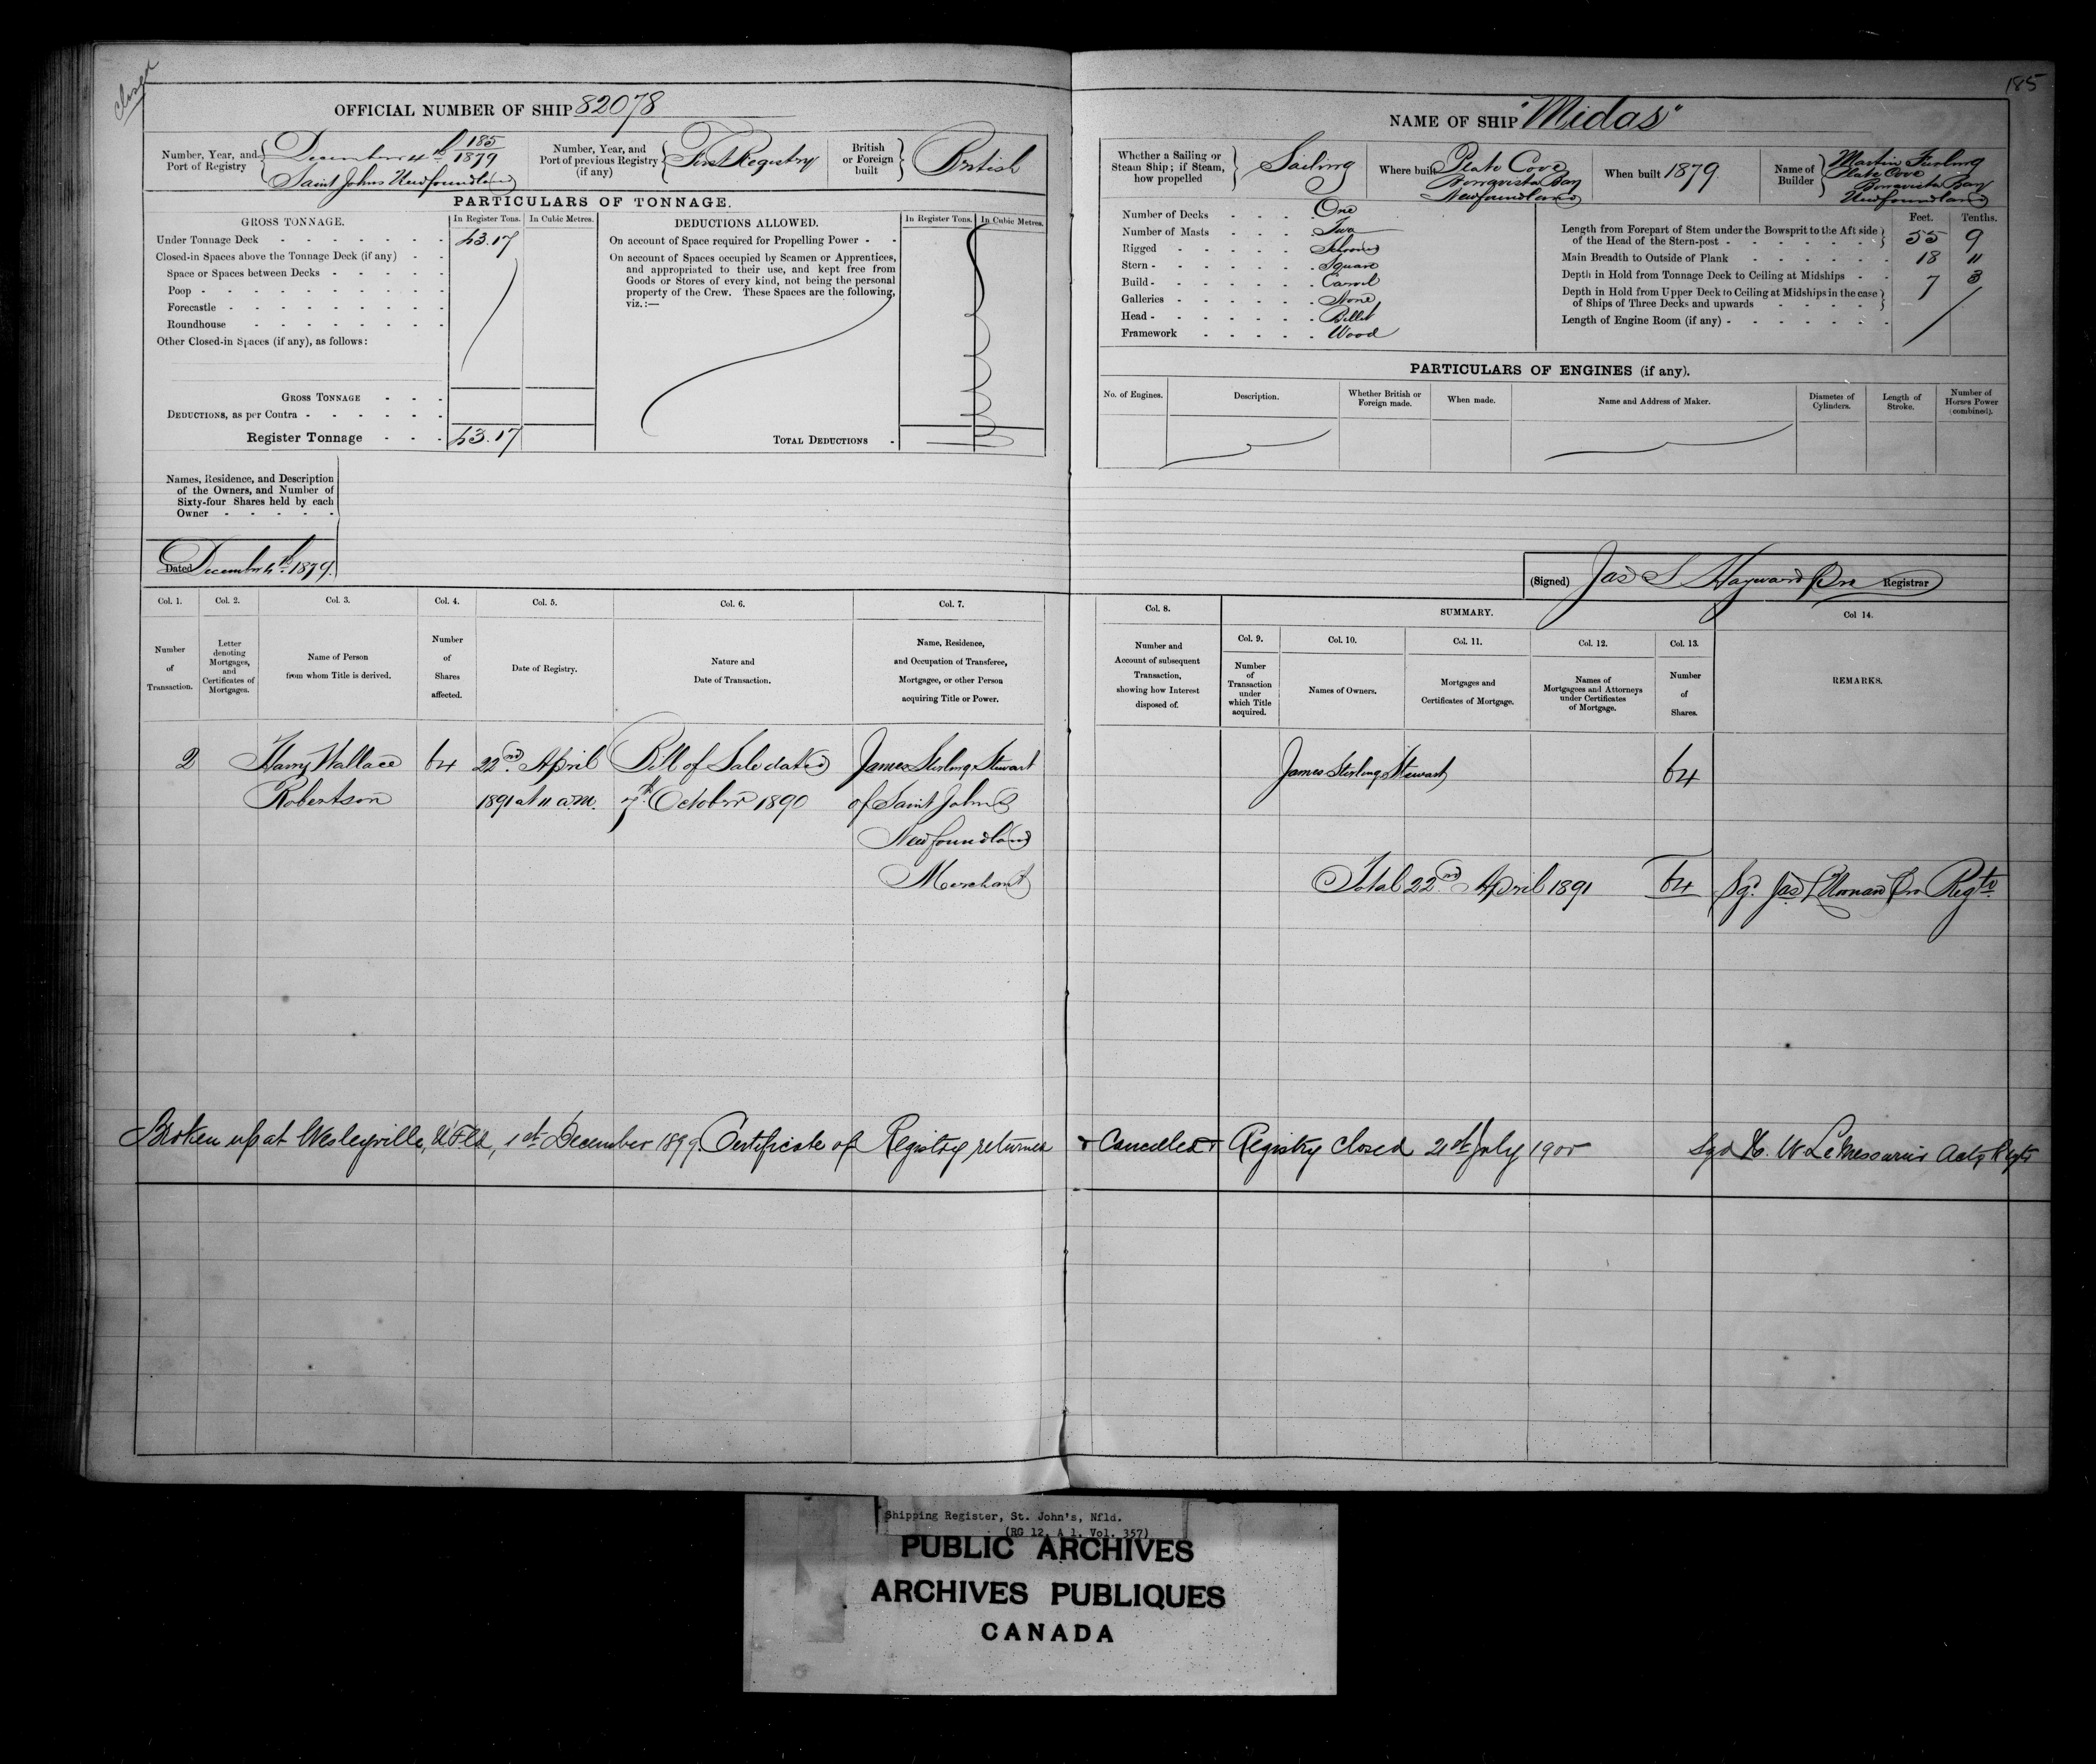 closed
185
OFFICIAL NUMBER OF SHIP 82078
Number, Year, and Port of Registry
December 4th 185/1879
Saint Johns Newfoundland
Number, Year, and Port of previous Registry (if any)
First Registry
British or Foreign built
British
PARTICULARS OF TONNAGE.
GROSS TONNAGE.
In Register Tons.
In Cubic Metres.
DEDUCTIONS ALLOWED.
In Register Tons.
In Cubic Metres.
Under Tonnage Deck 43.17
Closed-in Spaces above the Tonnage Deck (if any)
Space or Spaces between Decks
Poop
Forecastle
Roundhouse
Other Closed-in Spaces (if any), as follows:
GROSS TONNAGE
DEDUCTIONS, as per Contra
Register Tonnage 43.17
On account of Space required for Propelling Power
On account of Spaces occupied by Seamen or Apprentices,
and appropriated to their use, and kept free from
Goods or Stores of every kind, not being the personal
property of the Crew. These Spaces are the following,
viz.:—
TOTAL DEDUCTIONS
NAME OF SHIP "Midas"
Whether a Sailing or Steam Ship; if Steam, how propelled
Sailing
Where built
Plate Cove
Bonavista Bay
Newfoundland
When built 1879
Name of Builder
Martin Furlong
Plate Cove
Bonavista Bay
Newfoundland
Number of Decks One
Number of Masts Two
Rigged Schooner
Stern Square
Build Carvel
Galleries None
Head Billet
Framework Wood
Feet. Tenths.
Length from Forepart of Stem under the Bowsprit to the Aft side
of the Head of the Stern-post 55 9
Main Breadth to Outside of Plank 18 11
Depth in Hold from Tonnage Deck to Ceiling at Midships 7 3
Depth in Hold from Upper Deck to Ceiling at Midships in the case
of Ships of Three Decks and upwards
Length of Engine Room (if any)
PARTICULARS OF ENGINES (if any).
No. of Engines.
Description.
Whether British or Foreign made.
When made.
Name and Address of Maker.
Diameter of Cylinders.
Length of Stroke.
Number of Horses Power (combined).
Names, Residence, and Description
of the Owners, and Number of
Sixty-four Shares held by each
Owner
Dated December 4th 1879.
(Signed) Jas S Hayward Pro Registrar
Col. 1.
Number of Transaction.
Col. 2.
Letter denoting Mortgages, and Certificates of Mortgages.
Col. 3.
Name of Person from whom Title is derived.
Col. 4.
Number of Shares affected.
Col. 5.
Date of Registry.
Col. 6.
Nature and Date of Transaction.
Col. 7.
Name, Residence, and Occupation of Transferee, Mortgagee, or other Person acquiring Title or Power.
Col. 8.
Number and Account of subsequent Transaction, showing how Interest disposed of.
SUMMARY.
Col. 9.
Number of Transaction under which Title acquired.
Col. 10.
Names of Owners.
Col. 11.
Mortgages and Certificates of Mortgage.
Col. 12.
Names of Mortgagees and Attorneys under Certificates of Mortgage.
Col. 13.
Number of Shares.
Col 14.
REMARKS.
2 Harry Wallace 64 22nd April Bill of Sale dated James Sterling Stewart
Robertson 1891 at 11 a.m. 7th October 1890 of Saint John's
Newfoundland
Merchant
James Sterling Stewart 64
Total 22nd April 1891 64 Sgd. Jas Pro Regtr
Broken up at Wesleyville, N'F'ld, 1st December 1899. Certificate of Registry returned & Cancelled & Registry closed 21st July 1900 Sgd H. W. LeMessurier Actg Regtr
Shipping Register, St. John's, Nfld.
(RG 12, A 1, Vol. 357)
PUBLIC ARCHIVES
ARCHIVES PUBLIQUES
CANADA